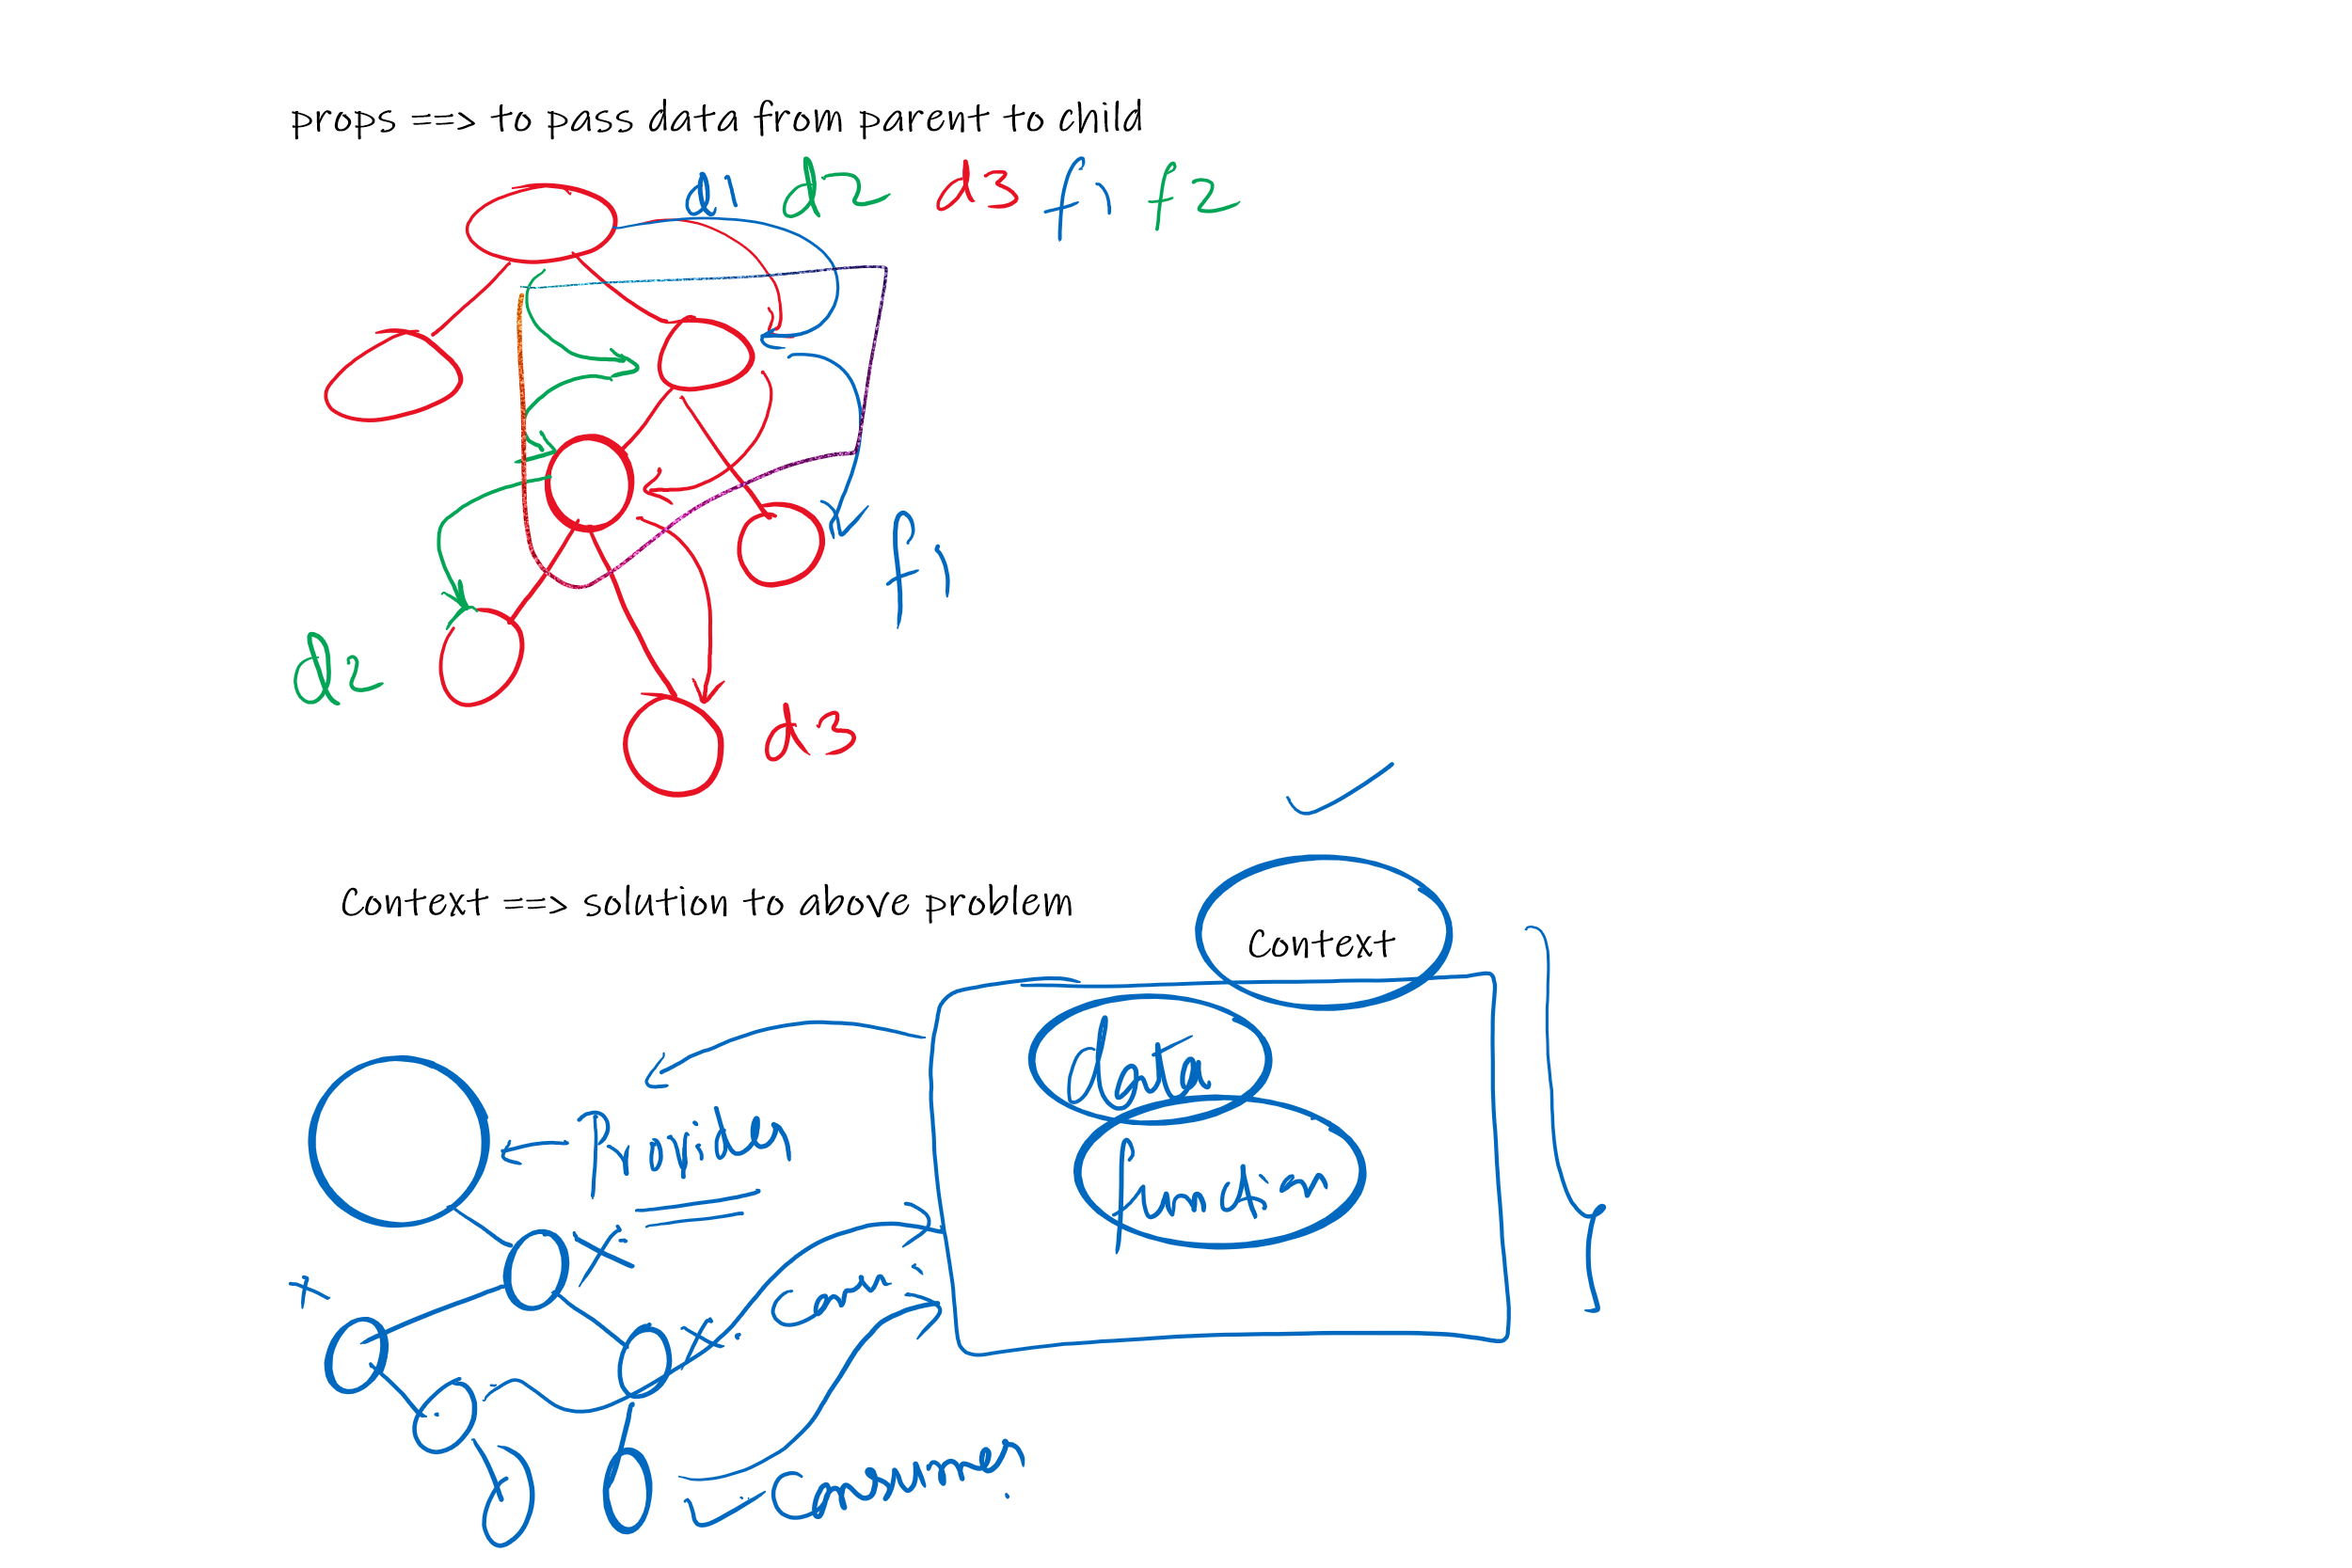 props ==> to pass data from parent to child
d1 d2 d3 f1 f2
f1
d2
d3
Context ==> solution to above problem
Context
data
Provider
function
Con
Consumer